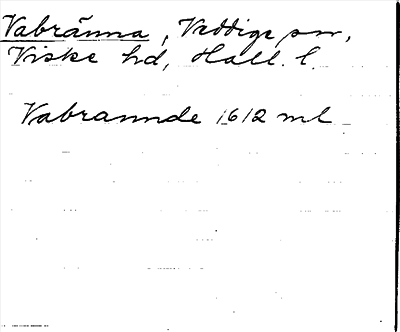 Vabränna, Veddige sn,
Viske hd, Hall. l.
Vabrannde 1612 ml